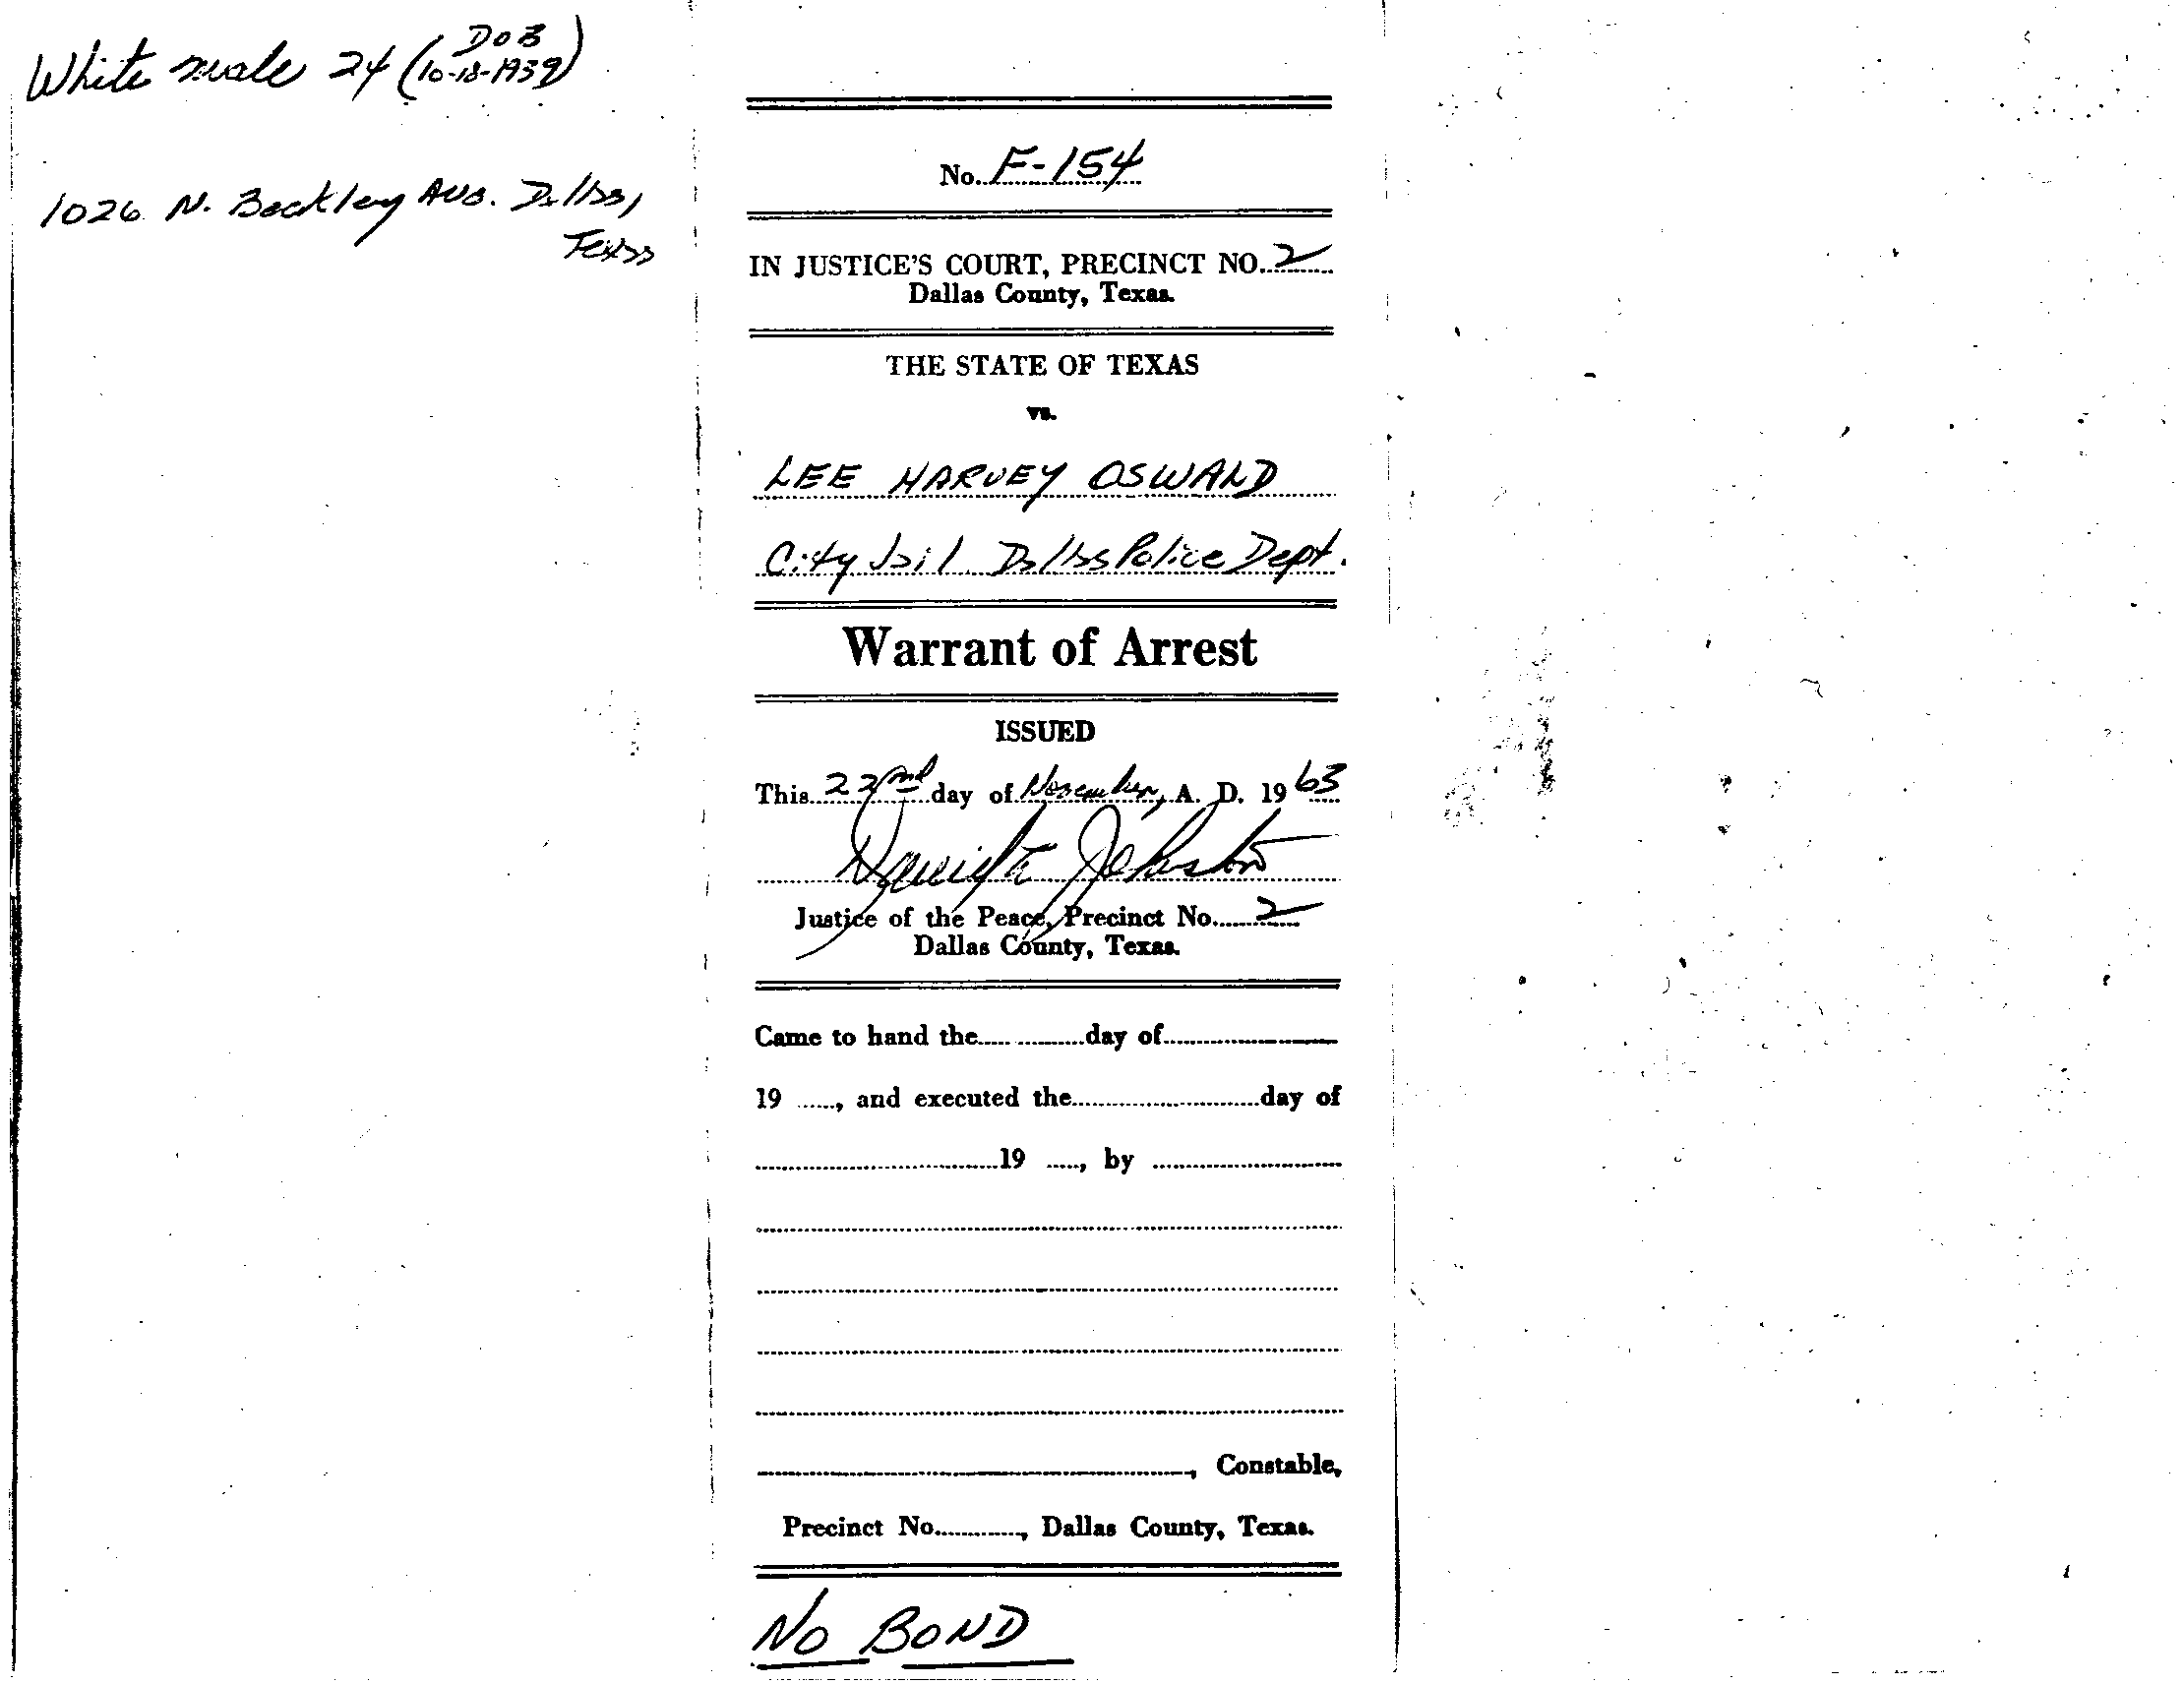 White male 24 (DOB
10-18-1939)
1026 N. Beckley Ave. Dallas,
Texas
No. F-154
IN JUSTICE'S COURT, PRECINCT NO. 2
Dallas County, Texas.
THE STATE OF TEXAS
vs.
LEE HARVEY OSWALD
City Jail Dallas Police Dept.
Warrant of Arrest
ISSUED
This 22nd day of November, A. D. 1963
David L Johnston
Justice of the Peace, Precinct No. 2
Dallas County, Texas.
Came to hand the ........ day of ........
19 ...., and executed the ........ day of
........ 19 ...., by ........
........, Constable,
Precinct No. ........, Dallas County, Texas.
NO BOND